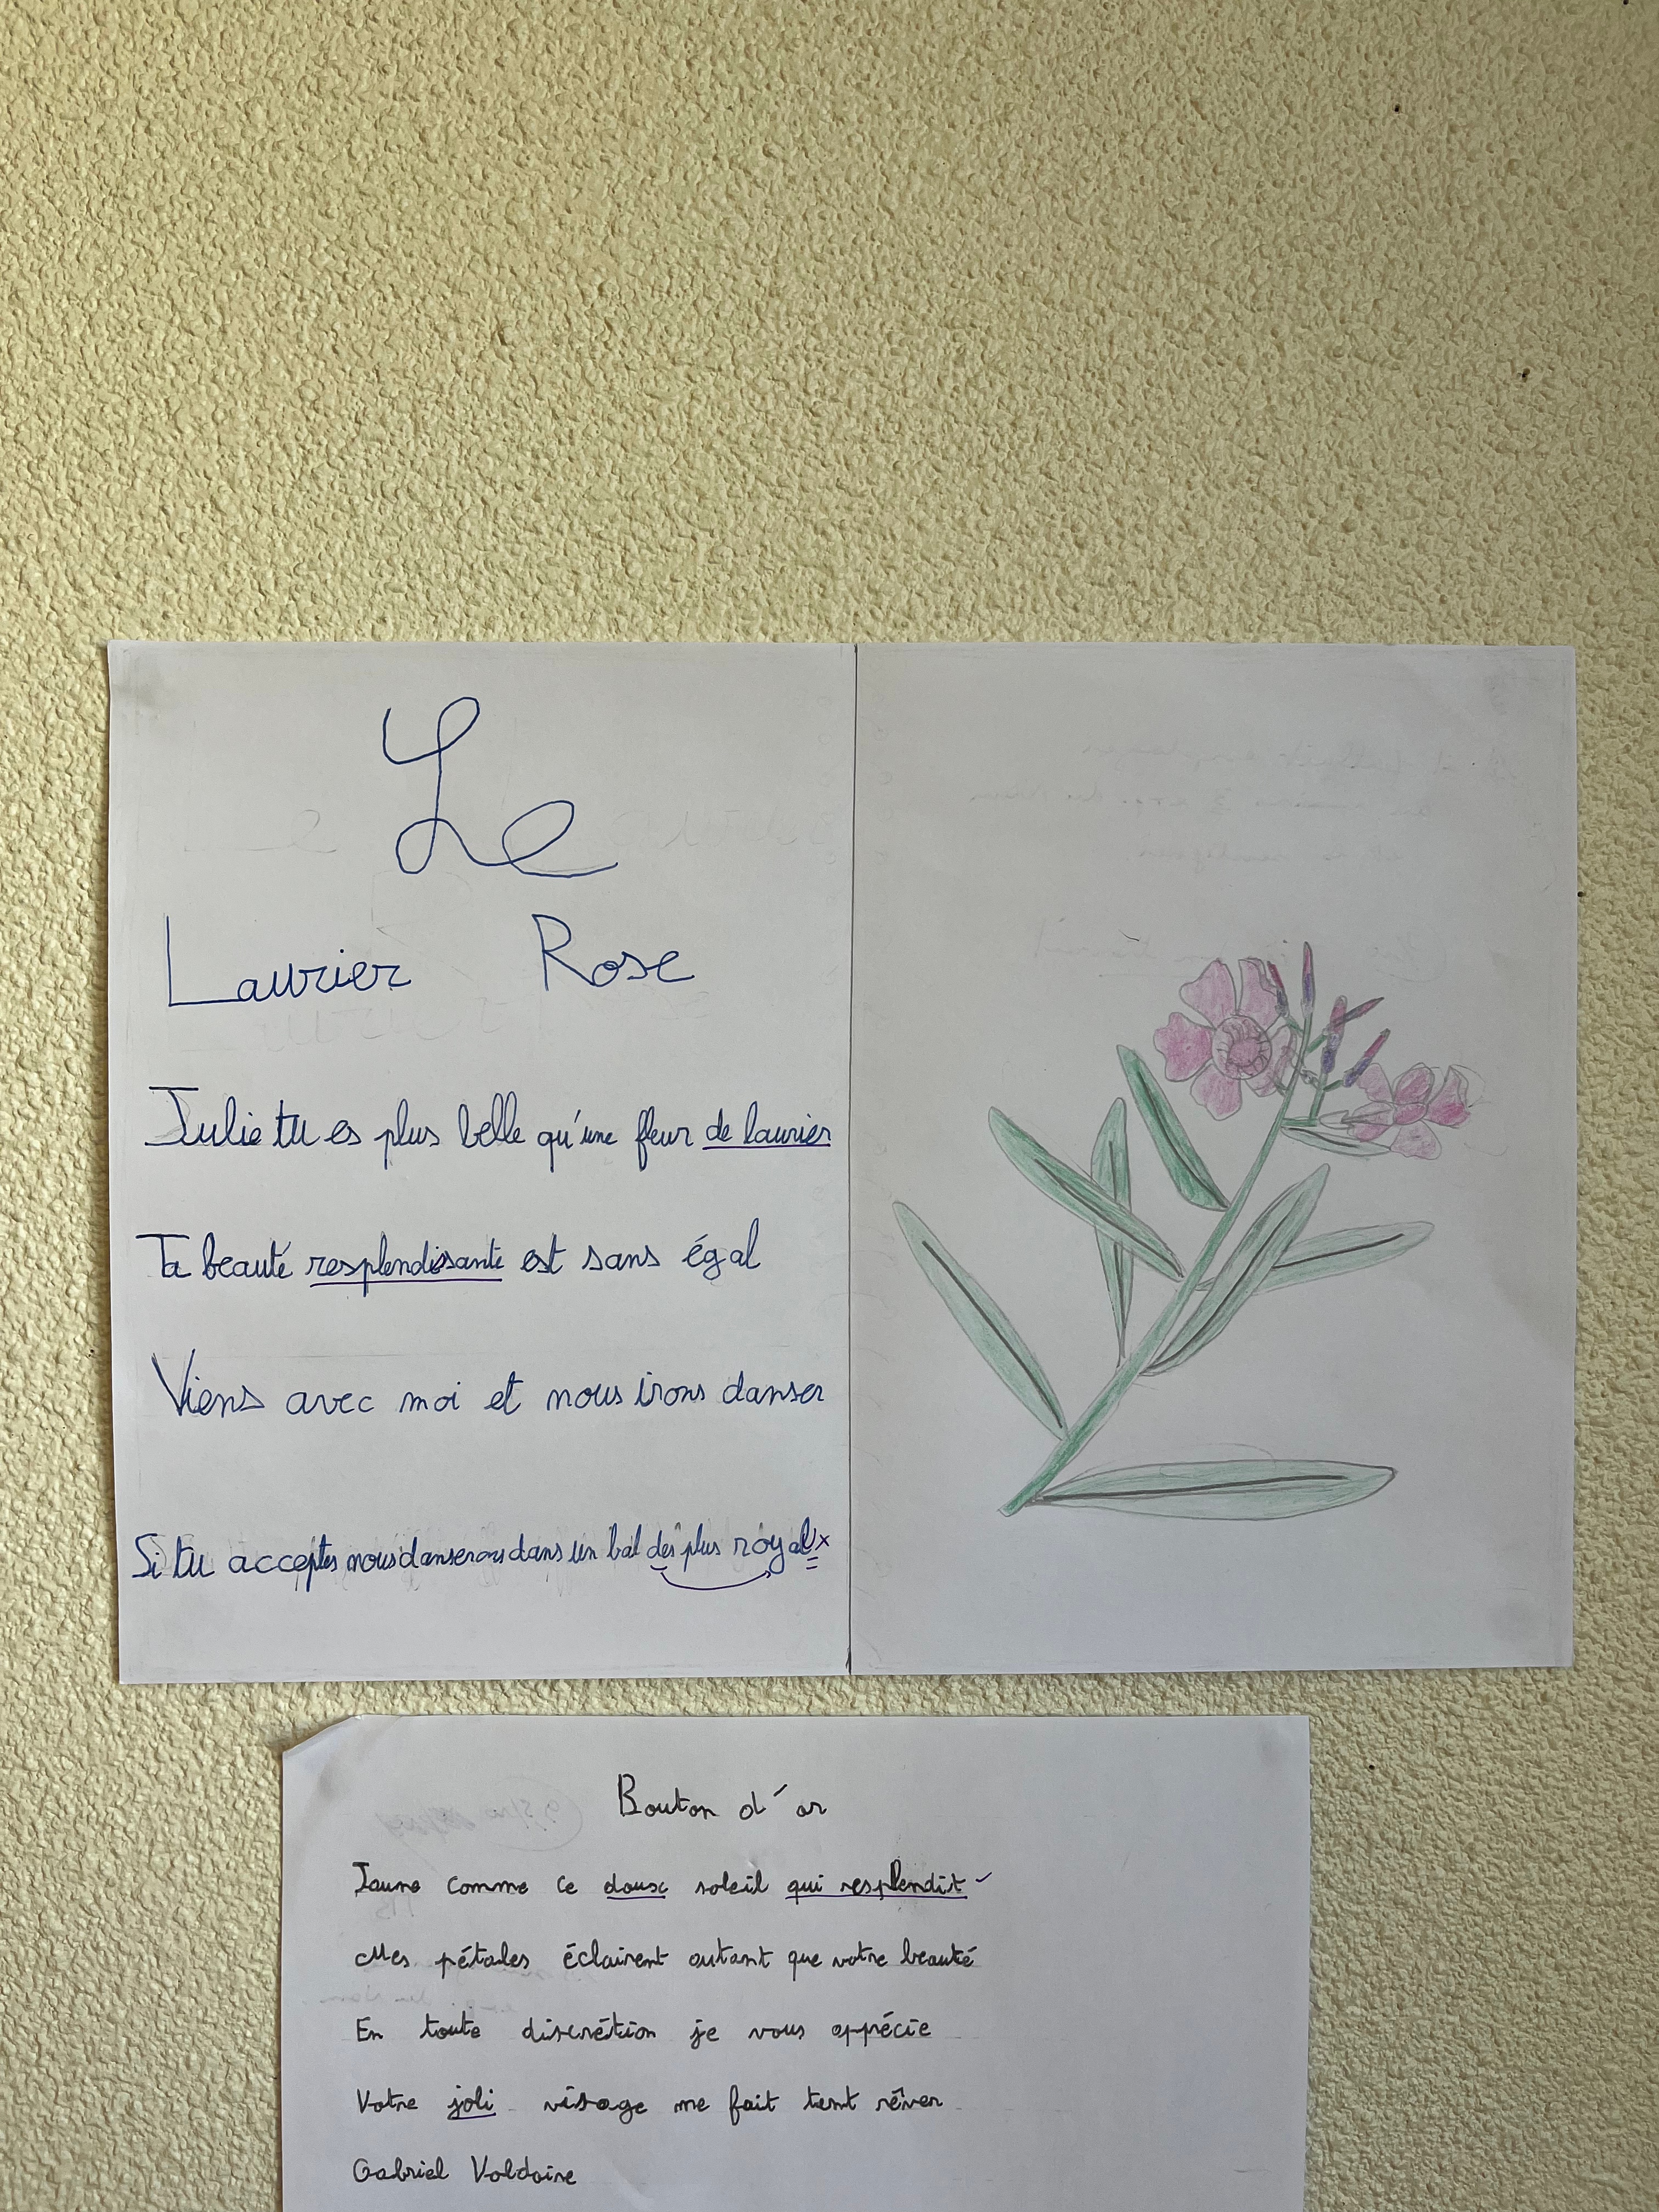 Le
Laurier Rose
Julie tu es plus belle qu'une fleur de laurier
Ta beauté resplendisante est sans égal
Viens avec moi et nous irons danser
Si tu acceptes nous danserons dans un bal des plus royaux
Bouton d'or
Jaune comme ce doux soleil qui resplendit
Mes pétales éclairent autant que votre beauté
En toute discrétion je vous appécie
Votre joli visage me fait tant rêver
Gabriel Voldoire